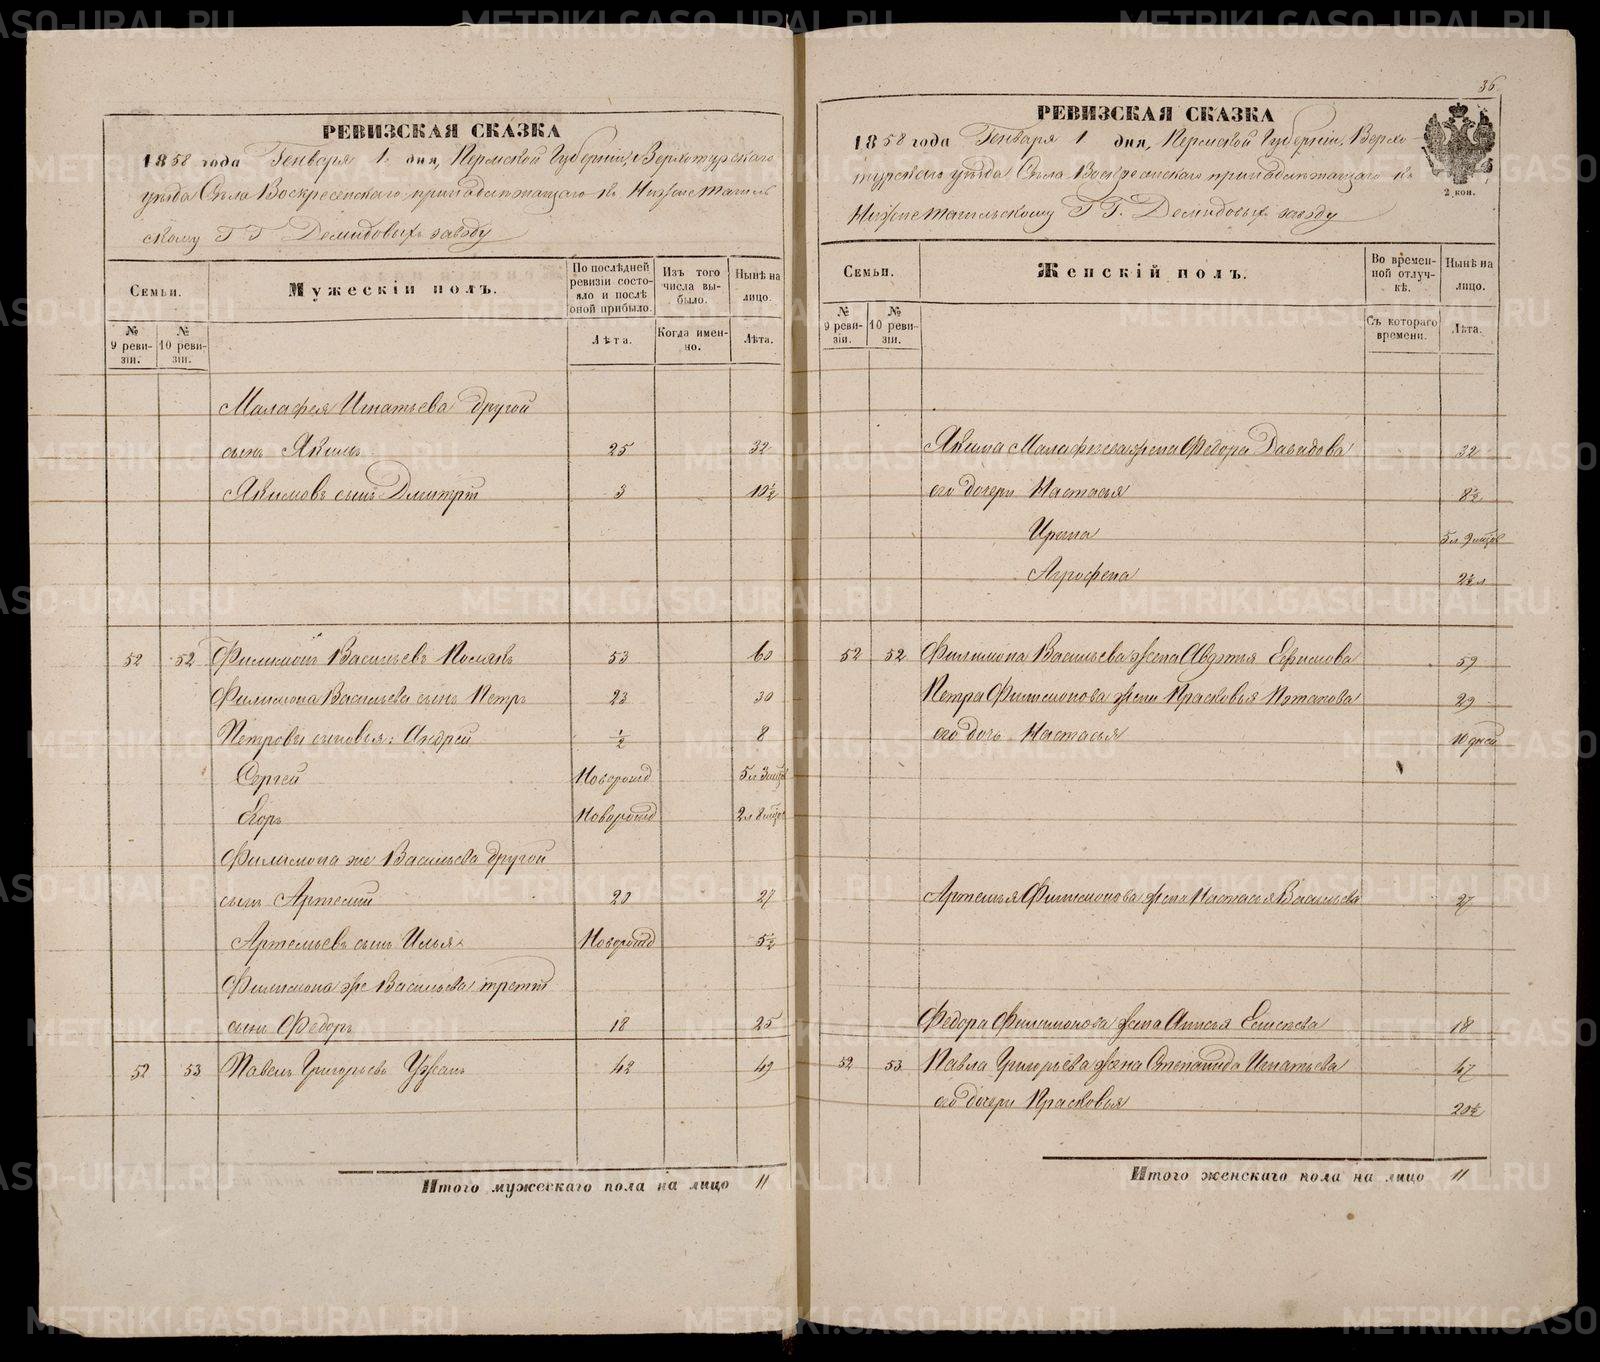 РЕВИЗСКАЯ СКАЗКА
1858 года Генваря 1 дня, Пермской Губернии, Верхотурскаго
уѣзда Села Воскресенскаго принадлежащаго къ Нижнетагиль
скому Г Г Демидовыхъ заводу
СЕМЬИ.
МУЖЕСКІЙ ПОЛЪ.
По послѣдней ревизіи состояло и послѣ оной прибыло.
Изъ того числа выбыло.
Нынѣ на лицо.
№ 9 ревизіи.
№ 10 ревизіи.
Лѣта.
Когда именно.
Лѣта.
Малафея Игнатьева другой
сынъ Якимъ 25 32
Якимовъ сынъ Дмитрій 3 10½
52 52 Филимонъ Васильевъ 53 60
Филимона Васильева сынъ Петръ 23 30
Петровы сыновья: Андрей ½ 8
Сергей Новорожд 5 л 3 мѣся
Егоръ Новорожд 2 л 8 мѣся
Филимона же Васильева другой
сынъ Артемий 20 27
Артемьевъ сынъ Илья Новорожд 5½
Филимона же Васильева третій
сынъ Федоръ 18 25
52 53 Павелъ Григорьевъ 42 49
Итого мужескаго пола на лицо 11
36
РЕВИЗСКАЯ СКАЗКА
1858 года Генваря 1 дня, Пермской Губерніи, Верхо
турскаго уѣзда Села Воскресенскаго принадлежащаго къ
Нижнетагильскому Г Г. Демидовыхъ заводу
2 коп.
СЕМЬИ.
ЖЕНСКІЙ ПОЛЪ.
Во временной отлучкѣ.
Нынѣ на лицо.
№ 9 ревизіи.
№ 10 ревизіи.
Съ котораго времени.
Лѣта.
Якима Малафеева жена Федора Давыдова 32
его дочери Настасья 8½
Ирина 5 л 9 мѣсяц
Агрофена 2½ л
52 52 Филимона Васильева жена Авдотья Ефимова 59
Петра Филимонова жена Прасковья 29
его дочь Настасья 10 дней
Артемья Филимонова жена Настасья Васильева 27
Федора Филимонова жена 18
52 53 Павла Григорьева жена Степанида Игнатьева 47
его дочери Прасковья 20½
Итого женскаго пола на лицо 11
METRIKI.GASO-URAL.RU